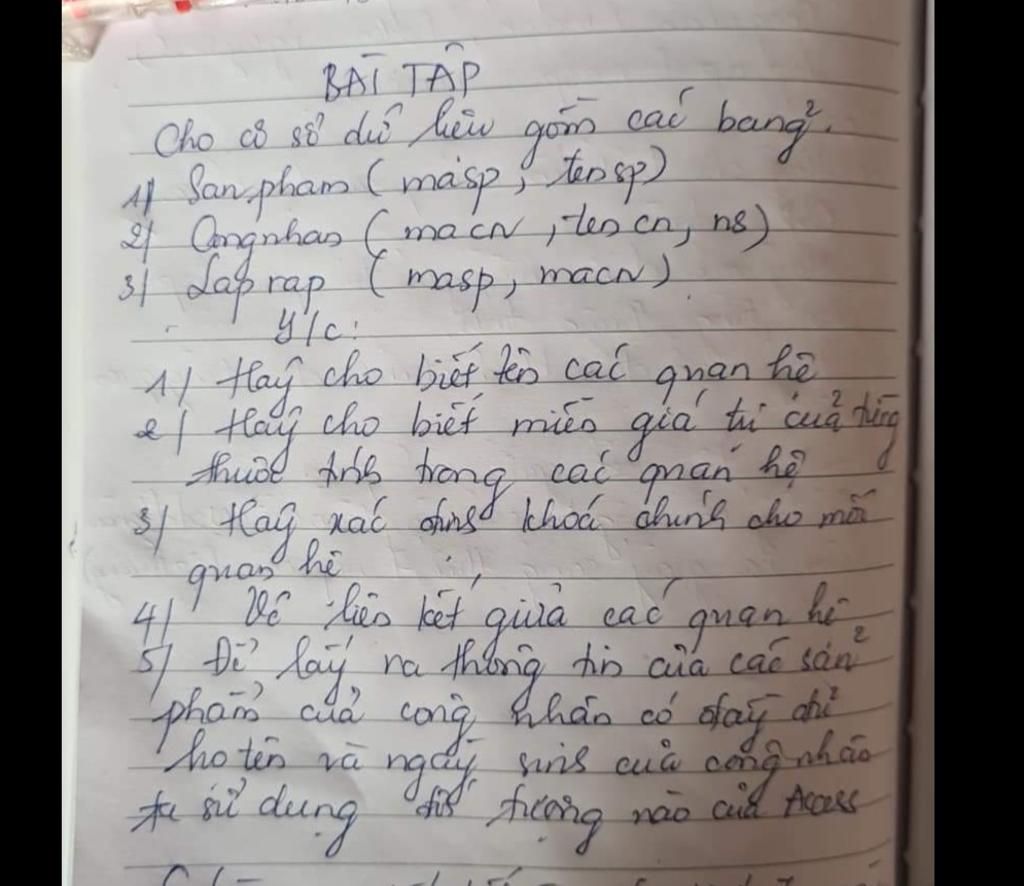 BÀI TẬP
Cho cơ sở dữ liệu gồm các bảng.
1) Sanpham (masp, tensp)
2) Congnhan (macn, tencn, ns)
3) Laprap (masp, macn)
Y/c:
1) Hãy cho biết tên các quan hệ
2) Hãy cho biết miền giá trị của từng
thuộc tính trong các quan hệ
3) Hãy xác định khoá chính cho mỗi
quan hệ
4) Vẽ liên kết giữa các quan hệ
5) Để lấy ra thông tin của các sản
phẩm của công nhân có đầy chỉ
họ tên và ngày sinh của công nhân
ta sử dụng đối tượng nào của Access